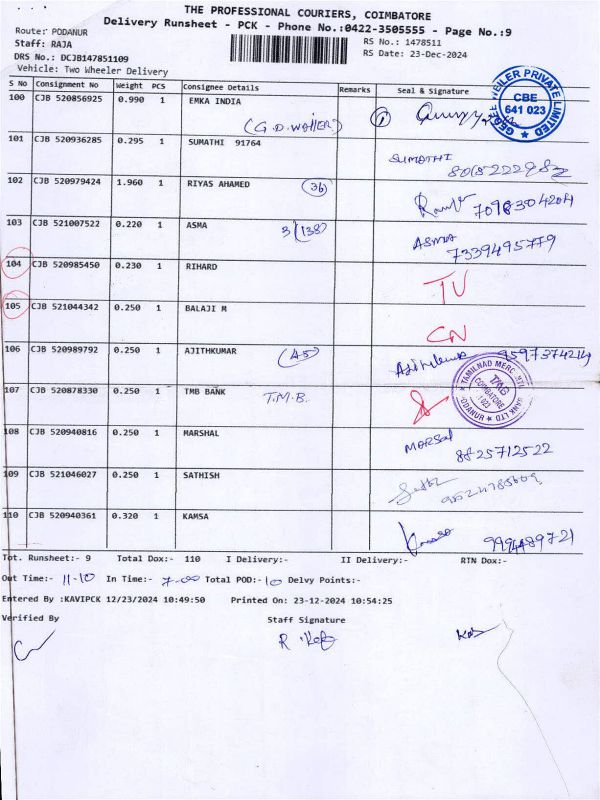 THE PROFESSIONAL COURIERS, COIMBATORE
Delivery Runsheet - PCK - Phone No.:0422-3505555 - Page No.:9
Route: PODANUR
Staff: RAJA RS No.: 1478511
DRS No.: DCJB147851109 RS Date: 23-Dec-2024
Vehicle: Two Wheeler Delivery
S No Consignment No Weight PCS Consignee Details Remarks Seal & Signature
100 CJB 520856925 0.990 1 EMKA INDIA
PRIVATE LIMITED
CBE
641 023
101 CJB 520936285 0.295 1 SUMATHI 91764
SUMATHI
102 CJB 520979424 1.960 1 RIYAS AHAMED 36
103 CJB 521007522 0.220 1 ASMA 3/138
ASMA
7339495779
104 CJB 520985450 0.230 1 RIHARD
105 CJB 521044342 0.250 1 BALAJI M
CN
106 CJB 520989792 0.250 1 AJITHKUMAR
9597374214
107 CJB 520878330 0.250 1 TMB BANK T.M.B.
TAMILNAD MERC
TMB
COIMBATORE
BANK LTD
108 CJB 520940816 0.250 1 MARSHAL
8825712522
109 CJB 521046027 0.250 1 SATHISH
110 CJB 520940361 0.320 1 KAMSA
Tot. Runsheet:- 9 Total Dox:- 110 I Delivery:- II Delivery:- RTN Dox:-
Out Time:- 11-10 In Time:- 7-00 Total POD:- 10 Delvy Points:-
Entered By :KAVIPCK 12/23/2024 10:49:50 Printed On: 23-12-2024 10:54:25
Verified By Staff Signature